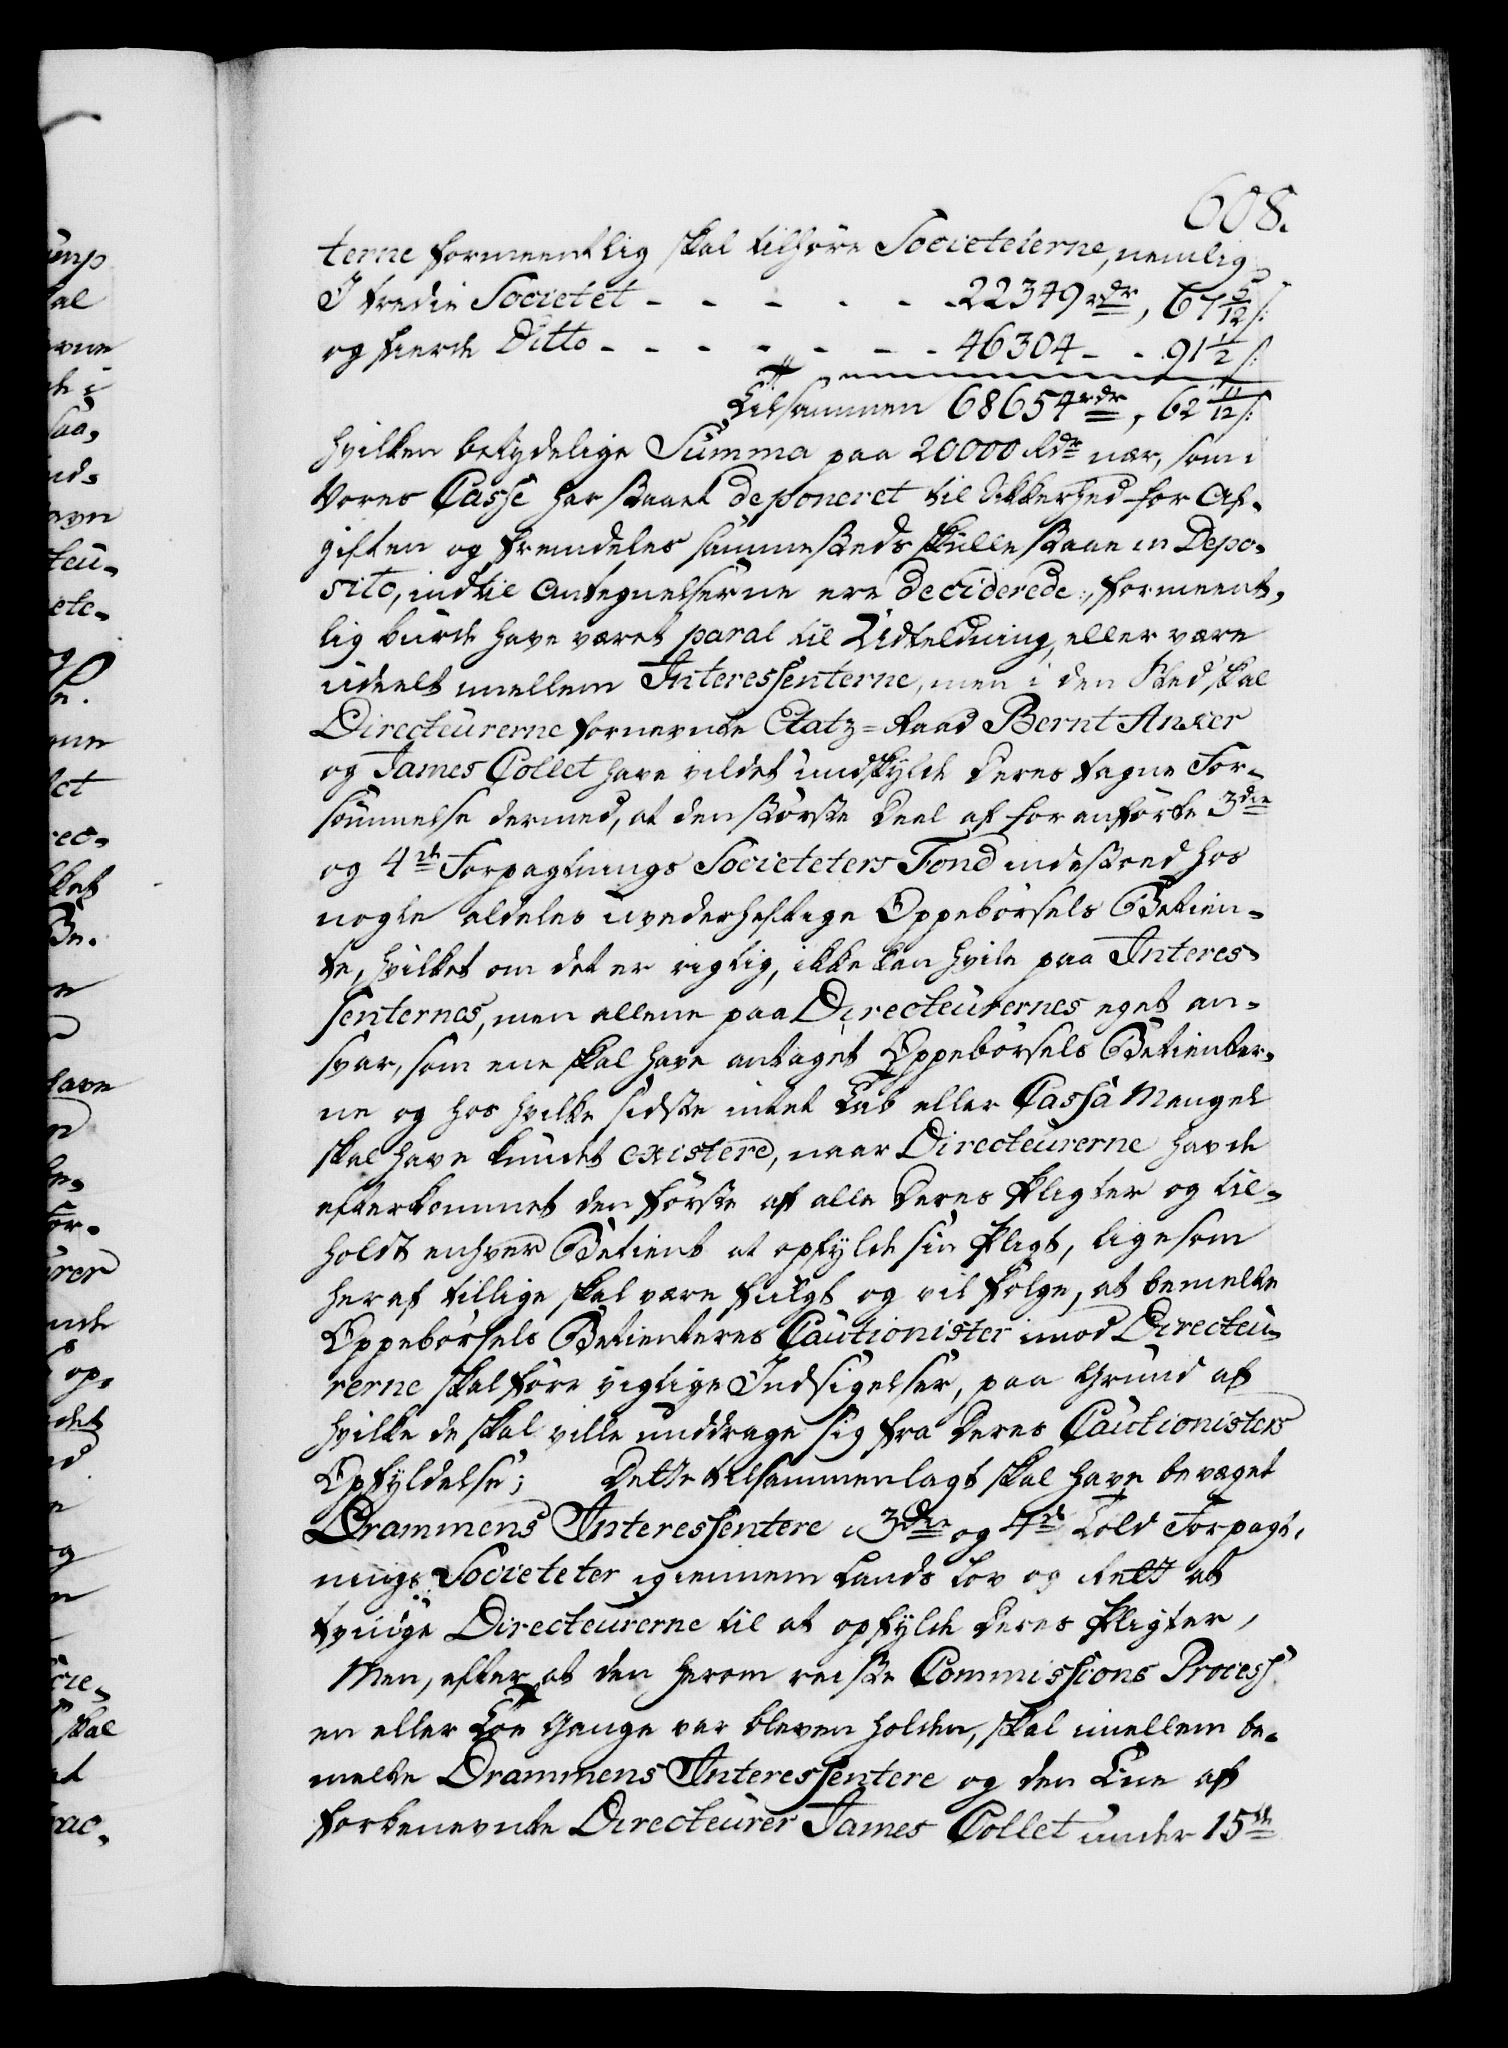 608.
terne formeentlig skal tilhøre Societeterne, nemlig
I tredie Societet - - - - - - - 22349 rdr, 67 5/12 s:
og fierde Ditto - - - - - - - - 46304 - - 91 1/2 s:
Tilsammen 68654 rdr, 62 11/12 s:
hvilken betydelige Summa paa 20000 Rdr nær, som i
Vores Casse har staaet deponeret til Sikkerhed for Af-
giften og fremdeles sammesteds skulle staae in Depo-
sito, indtil Antegnelserne ere deciderede, formeent-
lig burde have været parat til Udteldning, eller være
udeelt mellem Interessenterne, men i den Sted skal
Directeurerne fornevnte Etatz-Raad Bernt Anker
og James Collet have vildet undskylde deres tagne For-
sømmelse dermed, at den største Deel af foranførte 3die
og 4de Forpagtnings Societeters Fond indestoed hos
nogle aldeles uvederheftige Oppebørsels Betien-
te, hvilket om det er rigtig, ikke kan hvile paa Interes-
senternes, men allene paa Directeurernes eget an-
svar, som ene skal have antaget Oppebørsels Betienter-
ne og hos hvilke sidste intet Tab eller Cassa Mangel
skal have kundet existere, naar Directeurerne havde
efterkommet den første af alle deres Pligter og til-
holdt enhver Betient at opfylde sin Pligt, ligesom
heraf tillige skal være fulgt og vil følge, at bemelte
Oppebørsels Betienteres Cautionister imod Directeu-
rerne skal føre vigtige Indsigelser, paa Grund af
hvilke de skal ville unddrage sig fra deres Cautionisters
Opfyldelse; Dette tilsammenlagt skal have bevæget
Drammens Interessentere i 3die og 4de Told Forpagt-
nings Societeter igiennem Lands Lov og Rett at
tvinge Directeurerne til at opfylde deres Pligter,
Men, efter at den herom reiste Commissions Process
en eller toe Gange var bleven holden, skal imellem be-
melte Drammens Interessentere og den Ene af
forbenevnte Directeurer James Collet under 15de